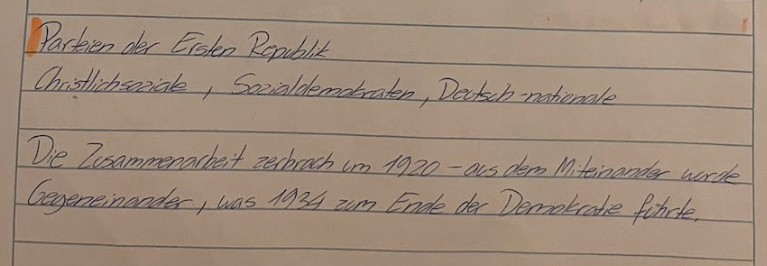 Parteien der Ersten Republik
Christlichsoziale, Sozialdemokraten, Deutsch-nationale
Die Zusammenarbeit zerbrach um 1920 - aus dem Miteinander wurde
Gegeneinander, was 1934 zum Ende der Demokratie führte.